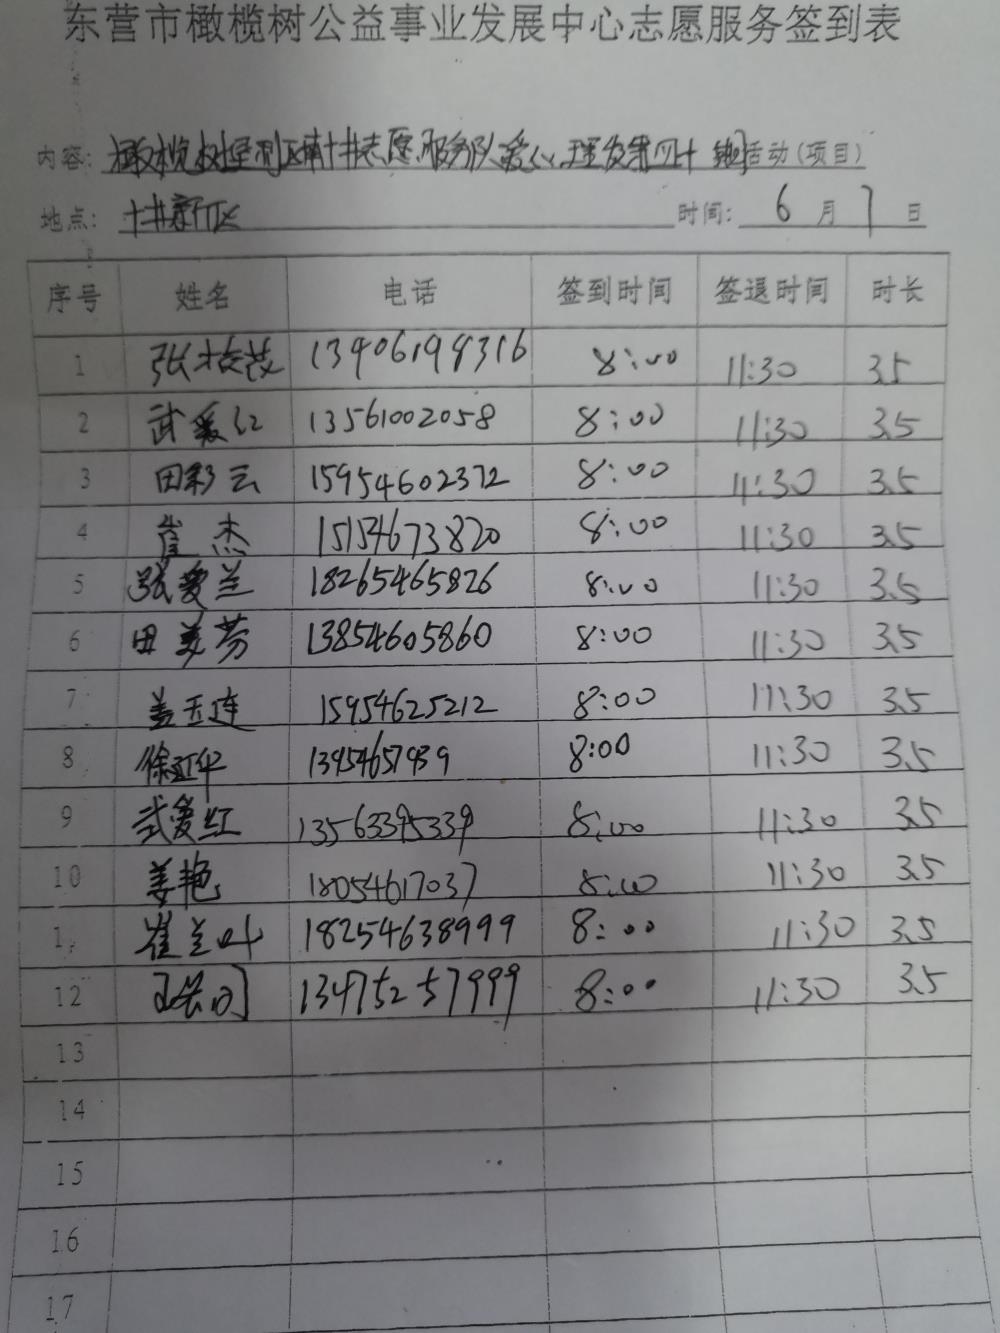 东营市橄榄树公益事业发展中心志愿服务签到表
内容: 橄榄树垦利区南十井志愿服务队爱心理发第四十 期活动(项目)
地点: 十井新区 时间: 6 月 7 日
序号 姓名 电话 签到时间 签退时间 时长
1 张 13406194316 8:00 11:30 3.5
2 武爱红 13561002058 8:00 11:30 3.5
3 田彩云 15954602372 8:00 11:30 3.5
4 崔杰 15154673820 8:00 11:30 3.5
5 张爱兰 18265465826 8:00 11:30 3.5
6 田美芳 13854605860 8:00 11:30 3.5
7 盖玉连 15954625212 8:00 11:30 3.5
8 徐红华 8:00 11:30 3.5
9 武爱红 13563395339 8:00 11:30 3.5
10 姜艳 18054617037 8:00 11:30 3.5
1 崔兰叶 18254638999 8:00 11:30 3.5
12 13475257999 8:00 11:30 3.5
13
14
15
16
17